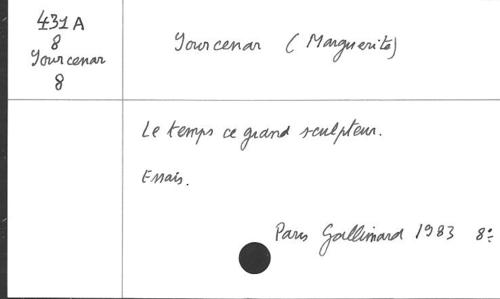 431 A
8
Yourcenar
8
Yourcenar (Marguerite)
Le temps ce grand sculpteur.
Essais.
Paris Gallimard 1983 8°